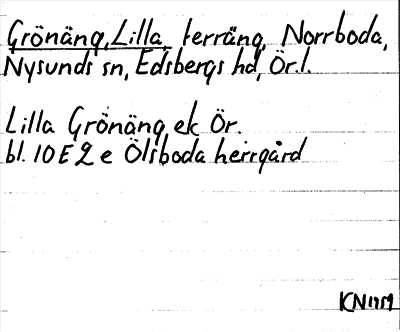 Grönäng, Lilla, terräng, Norrboda,
Nysunds sn, Edsbergs hd, Ör.l.
Lilla Grönäng ek Ör.
bl. 10E 2 e Ölsboda herrgård